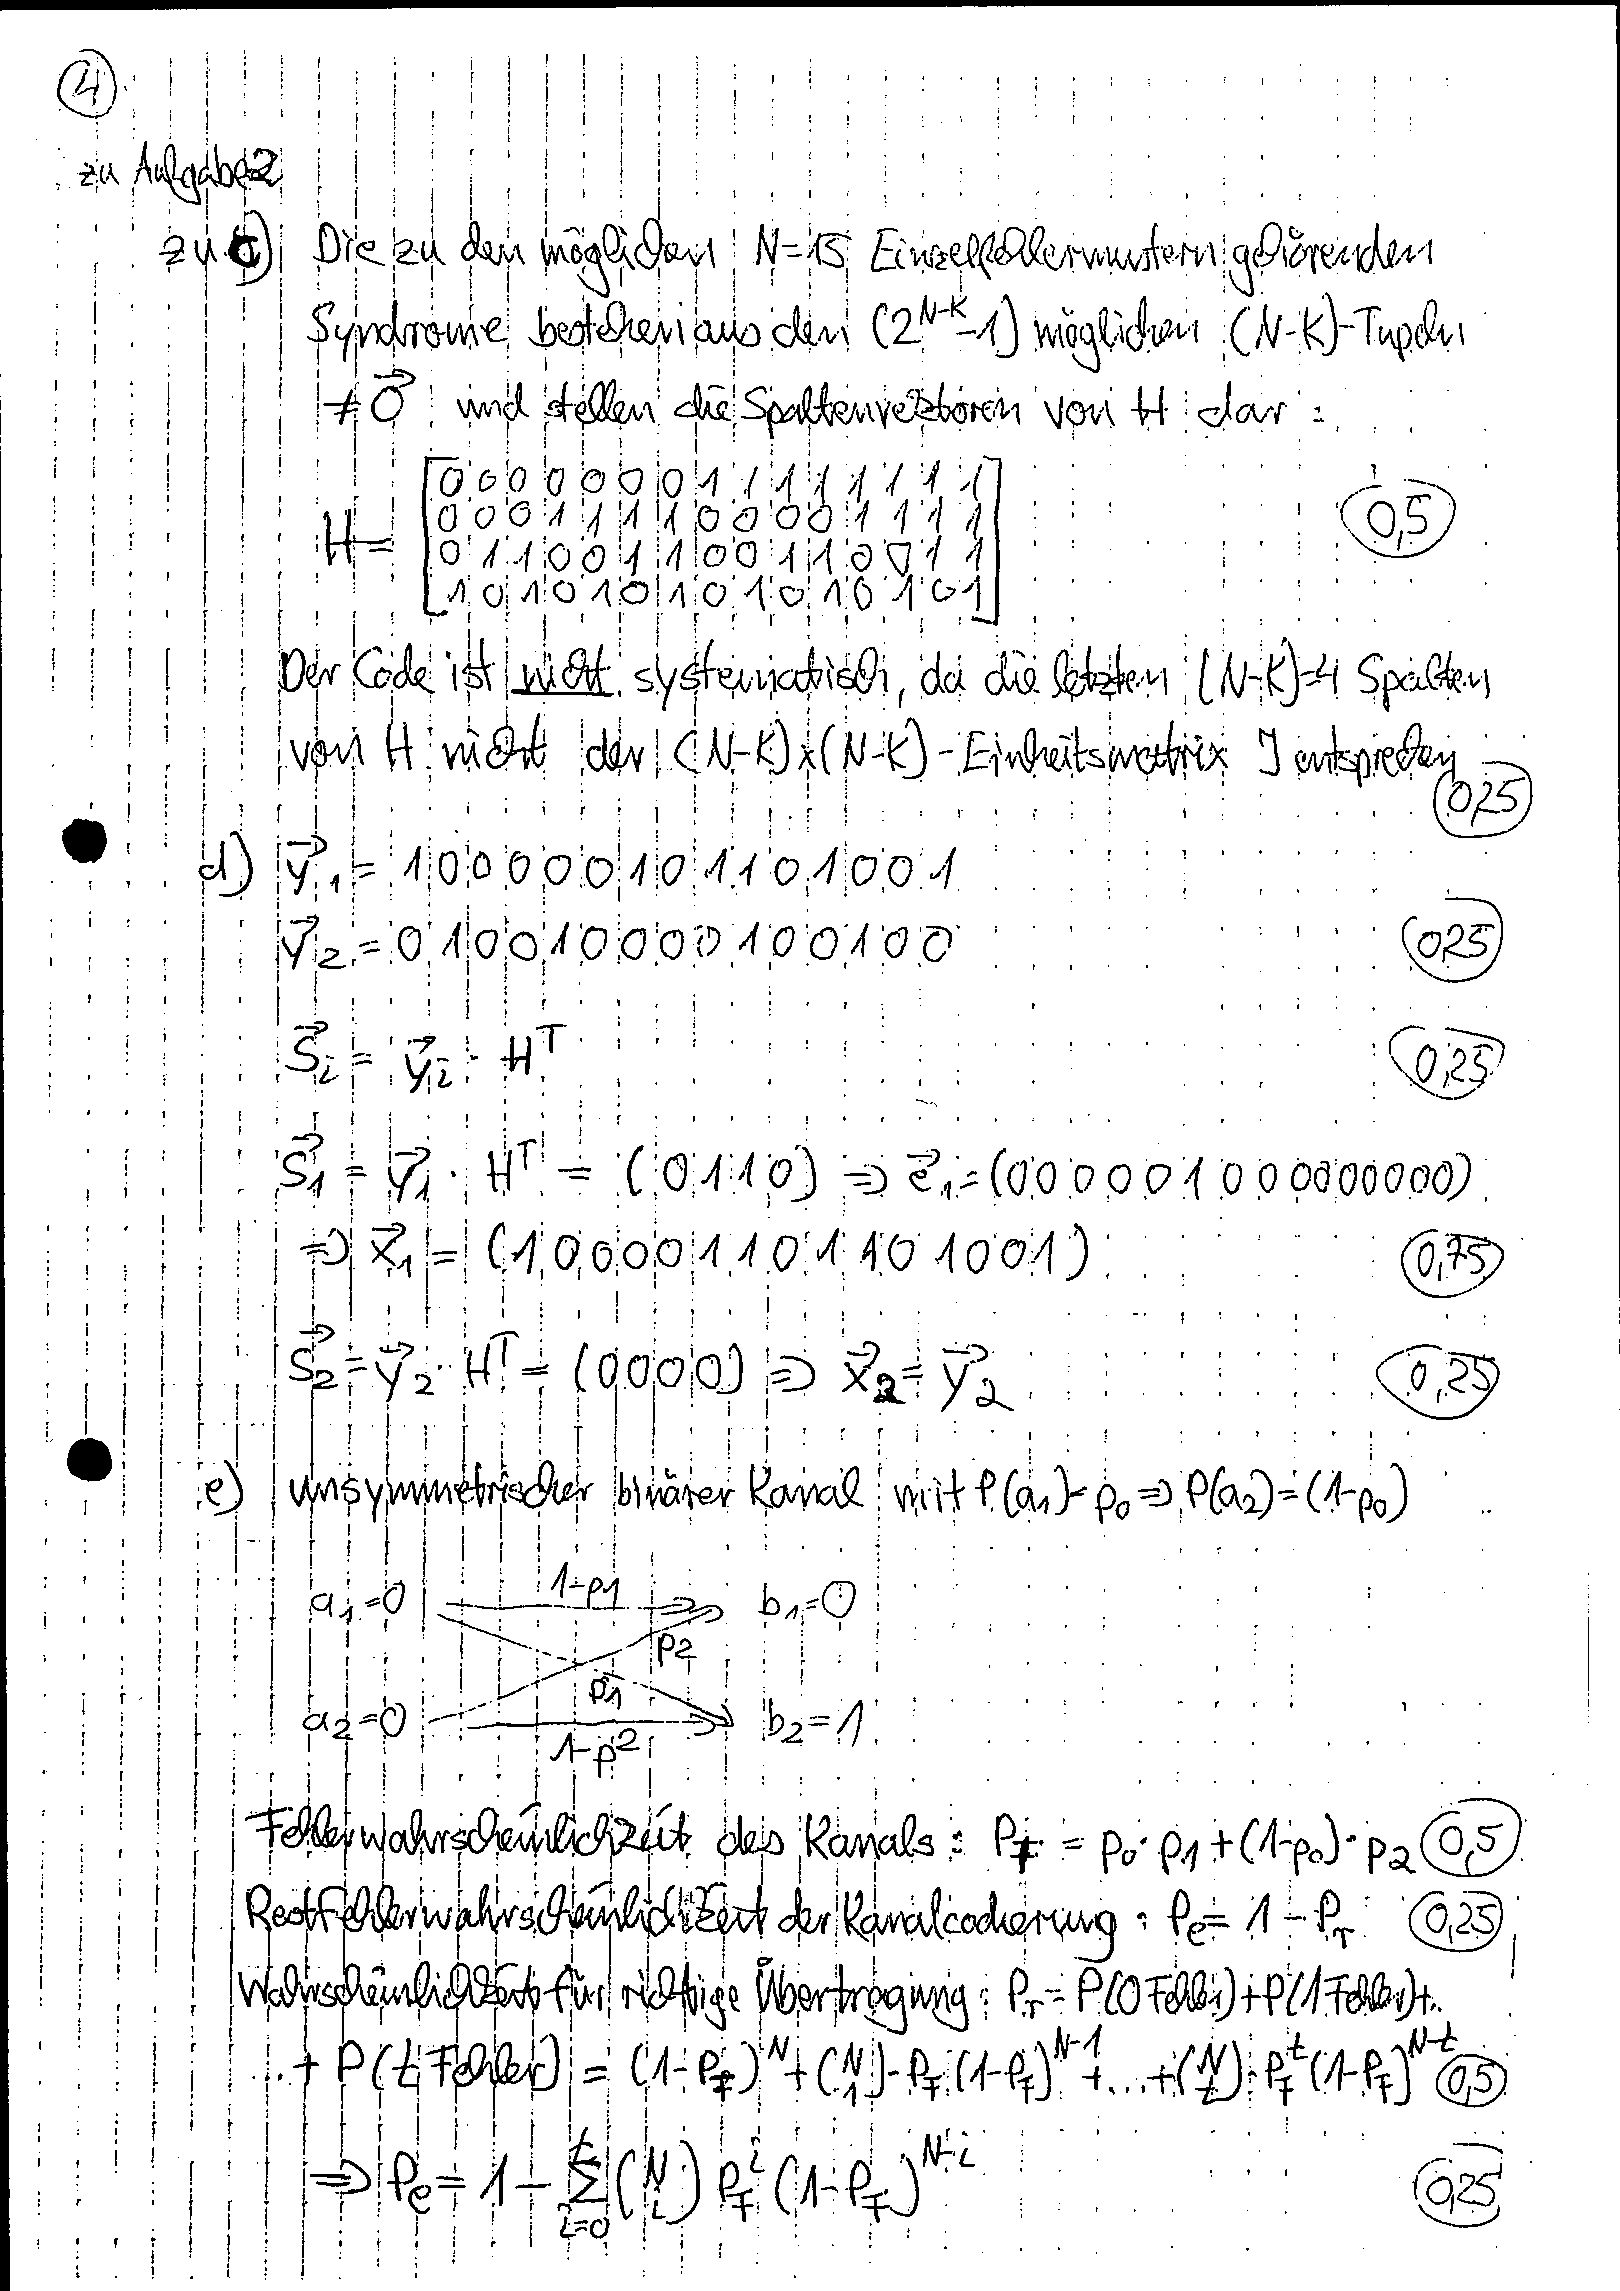 4
zu Aufgabe 2
zu c) Die zu den möglichen N=15 Einzelfehlermustern gehörenden
Syndrome bestehen aus den (2^N-K -1) möglichen (N-K)-Tupeln
≠ 0⃗ und stellen die Spaltenvektoren von H dar:
H = [0 0 0 0 0 0 0 1 1 1 1 1 1 1 1
0 0 0 1 1 1 1 0 0 0 0 1 1 1 1
0 1 1 0 0 1 1 0 0 1 1 0 0 1 1
1 0 1 0 1 0 1 0 1 0 1 0 1 0 1] 0,5
Der Code ist nicht systematisch, da die letzten (N-K)=4 Spalten
von H nicht der (N-K)x(N-K)-Einheitsmatrix I entsprechen
0,25
d) y⃗1 = 1 0 0 0 0 0 1 0 1 1 0 1 0 0 1
y⃗2 = 0 1 0 0 1 0 0 0 0 1 0 0 1 0 0 0,25
S⃗i = y⃗i · H^T 0,25
S⃗1 = y⃗1 · H^T = (0 1 1 0) ⇒ e⃗1 = (0 0 0 0 0 1 0 0 0 0 0 0 0 0 0)
⇒ x⃗1 = (1 0 0 0 0 1 1 0 1 1 0 1 0 0 1) 0,75
S⃗2 = y⃗2 · H^T = (0 0 0 0) ⇒ x⃗2 = y⃗2 0,25
e) unsymmetrischer binärer Kanal mit P(a1)=p0 ⇒ P(a2)=(1-p0)
a1=0 1-p1 b1=0
p2
p1
a2=0 1-p2 b2=1
Fehlerwahrscheinlichkeit des Kanals: PF = p0·p1+(1-p0)·p2 0,5
Restfehlerwahrscheinlichkeit der Kanalcodierung: Pe = 1 - Pr 0,25
Wahrscheinlichkeit für richtige Übertragung: Pr = P(0 Fehler)+P(1 Fehler)+..
...+ P(t Fehler) = (1-PF)^N + (N 1)·PF(1-PF)^N-1 +...+(N t)·PF^t(1-PF)^N-t 0,5
⇒ Pe = 1 - Σ_i=0^t (N i) PF^i (1-PF)^N-i 0,25